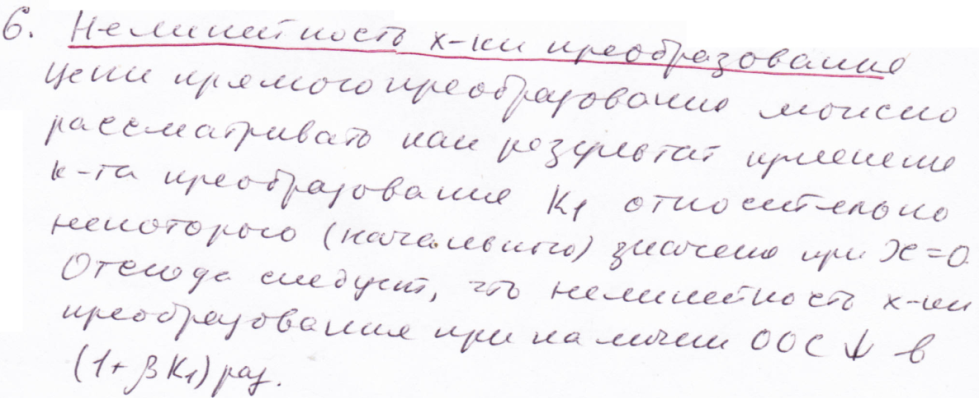 6. Нелинейность х-ки преобразования
цепи прямого преобразования можно
рассматривать как результат изменения
к-та преобразования K₁ относительно
некоторого (начального) значения при X=0.
Отсюда следует, что нелинейность х-ки
преобразования при наличии ООС ↓ в
(1+βK₁) раз.